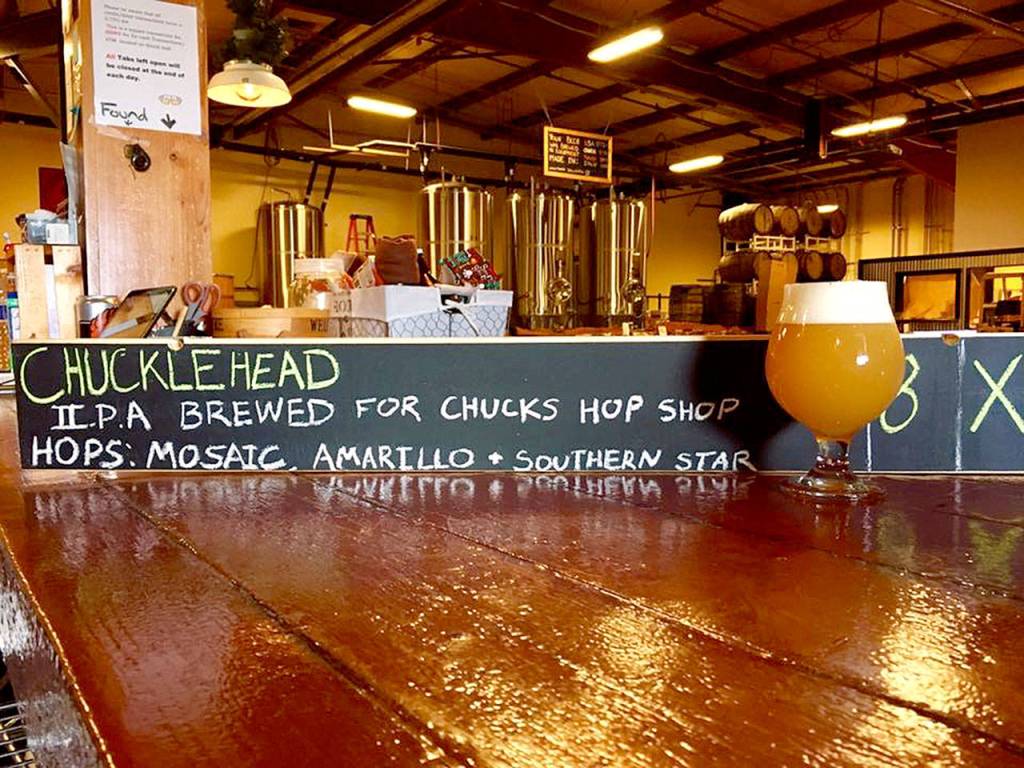 All Tabs left open will
be closed at the end of
each day.
Found
YOUR BEER
WAS BREWED
MADE IN:
CHUCKLEHEAD
II.P.A BREWED FOR CHUCKS HOP SHOP
HOPS: MOSAIC, AMARILLO + SOUTHERN STAR
8
X